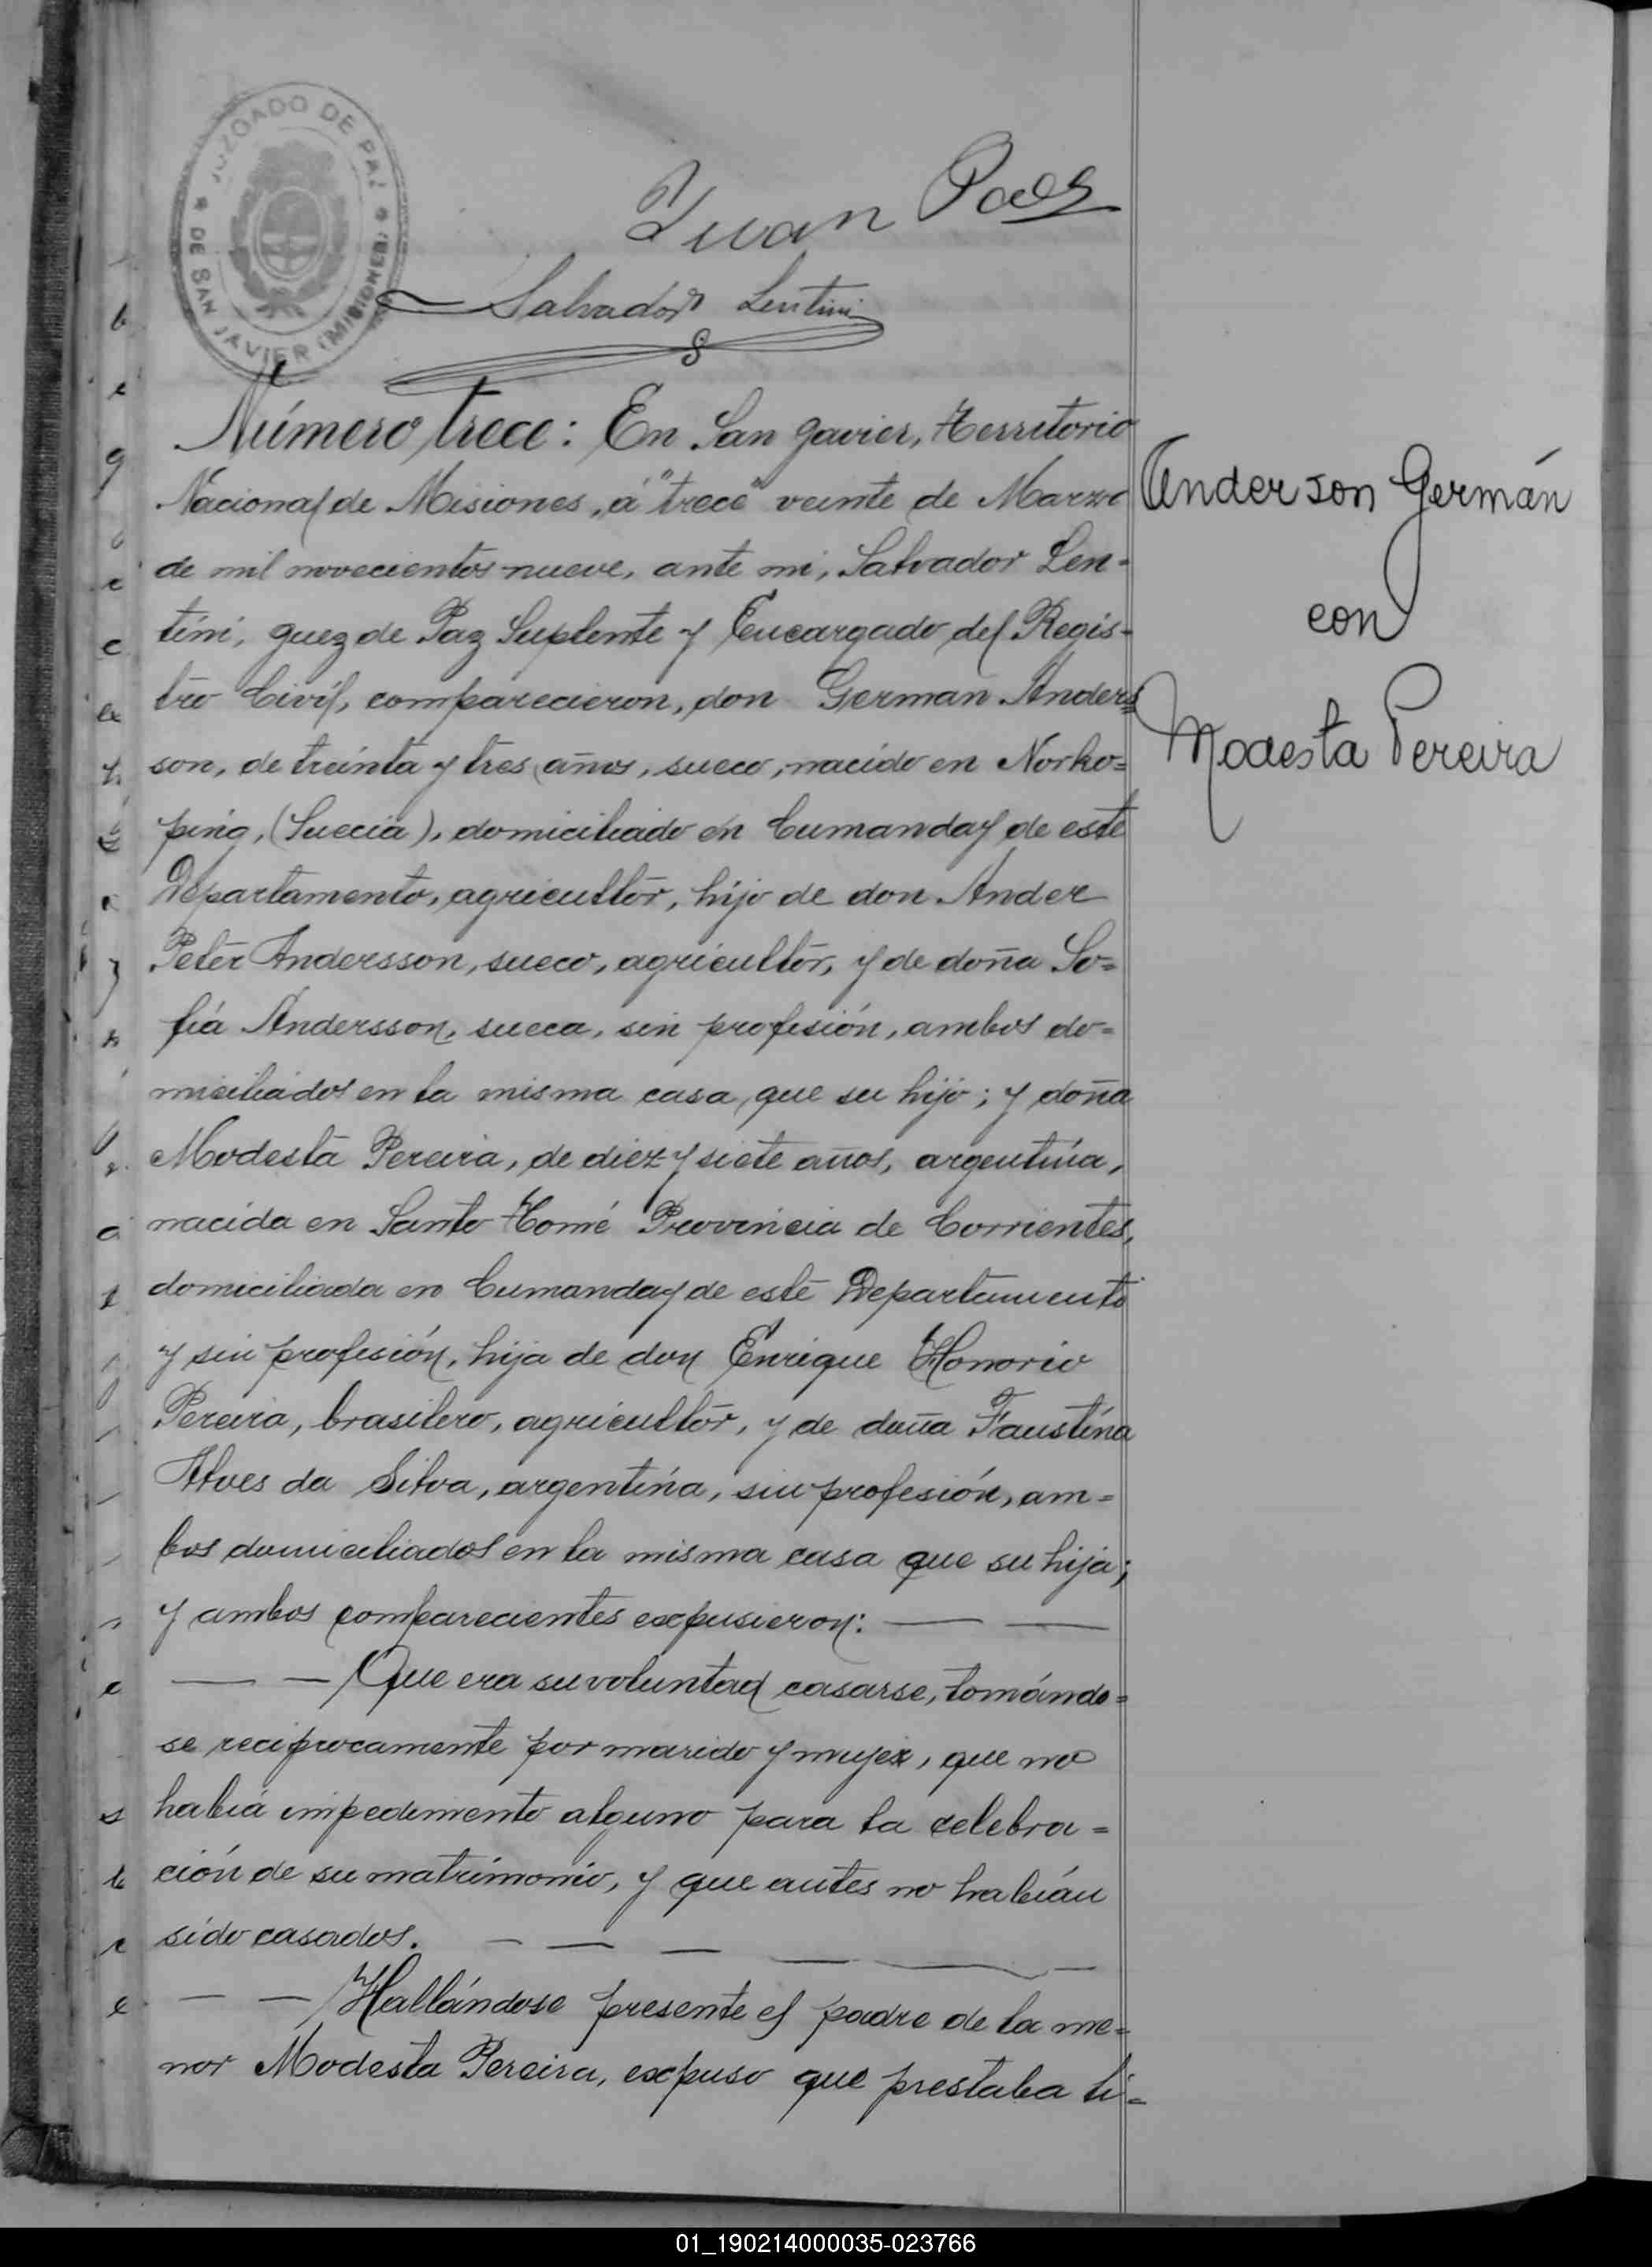 JUZGADO DE PAZ
DE SAN JAVIER (MISIONES)
Juan Paes
Salvador Lentini
Número trece: En San Javier, Territorio
Nacional de Misiones, á "trece" veinte de Marzo
de mil novecientos nueve, ante mi, Salvador Len-
tini, Juez de Paz Suplente y Encargado del Regis-
tro Civil, comparecieron, don German Anders=
son, de treinta y tres años, sueco, nacido en Norko=
ping, (Suecia), domiciliado en Cumanday de este
Departamento, agricultor, hijo de don Ander
Peter Andersson, sueco, agricultor, y de doña So=
fía Andersson, sueca, sin profesión, ambos do=
miciliados en la misma casa que su hijo; y doña
Modesta Pereira, de diez y siete años, argentina,
nacida en Santo Tomé Provincia de Corrientes,
domiciliada en Cumanday de este Departamento
y sin profesión, hija de don Enrique Honorio
Pereira, brasilero, agricultor, y de doña Faustina
Alves da Silva, argentina, sin profesión, am=
bos domiciliados en la misma casa que su hija;
y ambos comparecientes expusieron:
Que era su voluntad casarse, tomándo=
se reciprocamente por marido y mujer, que no
había impedimento alguno para la celebra=
ción de su matrimonio, y que antes no habían
sido casados.
Hallándose presente el padre de la me=
nor Modesta Pereira, expuso que prestaba li=
Anderson Germán
con
Modesta Pereira
01_190214000035-023766